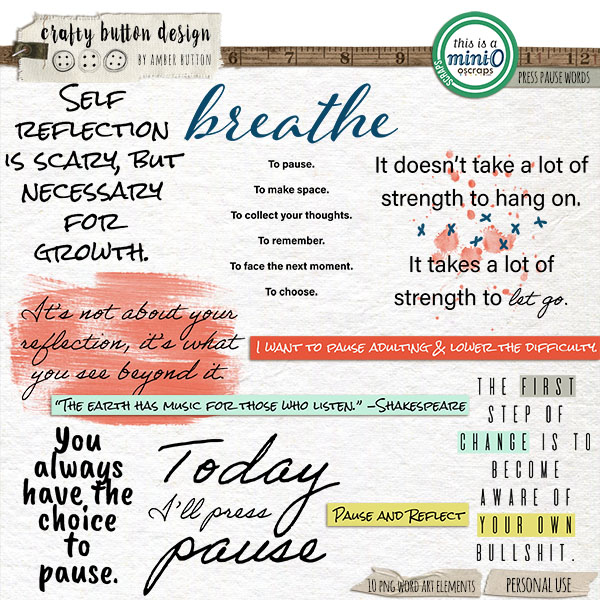 crafty button design
BY AMBER BUTTON
6 7 8
11 12
this is a
miniO
oscraps
SCRAPS
PRESS PAUSE WORDS
SELF
REFLECTION
IS SCARY, BUT
NECESSARY
FOR
GROWTH.
breathe
To pause.
To make space.
To collect your thoughts.
To remember.
To face the next moment.
To choose.
It doesn't take a lot of
strength to hang on.
x x x x x x x
It takes a lot of
strength to let go.
It's not about your
reflection, it's what
you see beyond it.
I WANT TO PAUSE ADULTING & LOWER THE DIFFICULTY.
"THE EARTH HAS MUSIC FOR THOSE WHO LISTEN." –SHAKESPEARE
You
always
have the
choice
to
pause.
Today
I'll press
pause
PAUSE AND REFLECT
THE FIRST
STEP OF
CHANGE IS TO
BECOME
AWARE OF
YOUR OWN
BULLSHIT.
10 PNG WORD ART ELEMENTS
PERSONAL USE